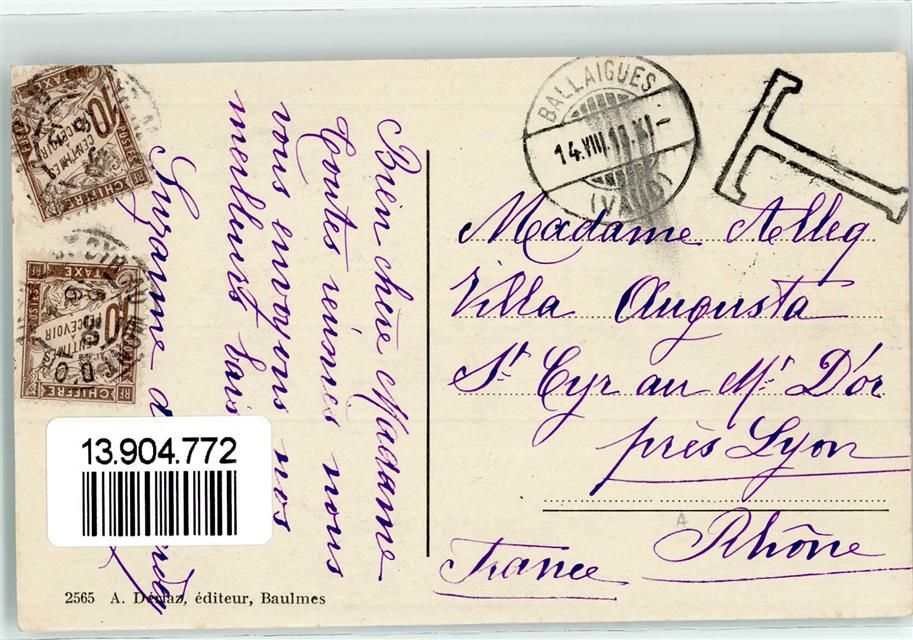 Bien chère Madame
Toutes réunies nous
vous envoyons nos
meilleurs bais
Suzanne d
BALLAIGUES
14.VIII.11.XI-
(VAUD)
T
Madame Alleg
Villa Augusta
St Cyr au Mt D'or
près Lyon
Rhône
France
10
CENTIMES
À PERCEVOIR
POSTES
RF CHIFFRE TAXE RF
10
CENTIMES
À PERCEVOIR
POSTES
RF CHIFFRE TAXE RF
13.904.772
2565 A. Dériaz, éditeur, Baulmes